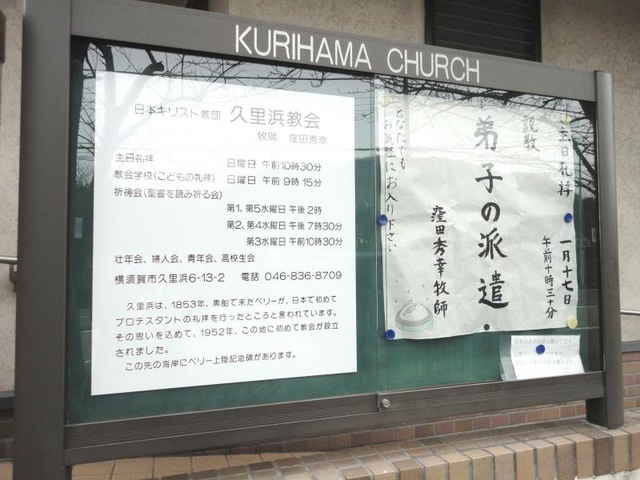 KURIHAMA CHURCH
日本キリスト教団 久里浜教会
牧師 窪田秀幸
主日礼拝 日曜日 午前10時30分
教会学校(こどもの礼拝) 日曜日 午前 9時15分
祈祷会(聖書を読み祈る会)
第1、第5水曜日 午後 2時
第2、第4水曜日 午後 7時30分
第3水曜日 午前10時30分
壮年会、婦人会、青年会、高校生会
横須賀市久里浜6-13-2 電話 046-836-8709
久里浜は、1853年、黒船で来たペリーが、日本で初めて
プロテスタントの礼拝を行ったところと言われています。
その思いを込めて、1952年、この地に初めて教会が設立
されました。
この先の海岸にペリー上陸記念碑があります。
主日礼拝 一月十七日
午前十時三十分
説教
弟子の派遣
窪田秀幸牧師
どなたでも
お気軽にお入り下さい